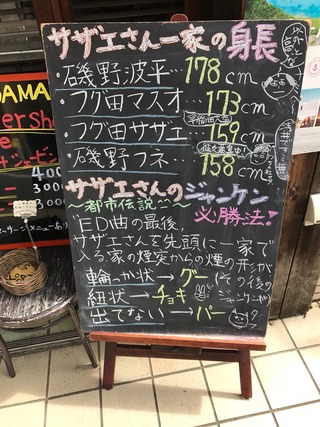 サザエさん一家の身長
・磯野波平…178cm
・フグ田マスオ 173cm
・フグ田サザエ…159cm
・磯野フネ… 158cm
サザエさんのジャンケン
～都市伝説～ 必勝法!
ED曲の最後、
サザエさんを先頭に一家で
入る家の煙突からの煙の形が
輪っか状→グー
紐状→チョキ
出てない→パー
(その後の
ジャンケン)
AMA
400
300